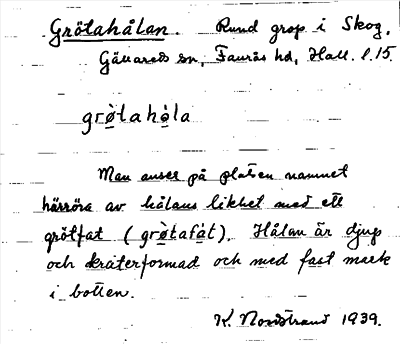 Grötahålan. Rund grop i Skog,
Gällareds sn, Faurås hd, Hall. l.15.
grø̀tahåla
Man anser på platsen namnet
härröra av hålans likhet med ett
grötfat (grø̀tafàt). Hålan är djup
och kraterformad och med fast mark
i botten.
K. Nordstrand 1939.